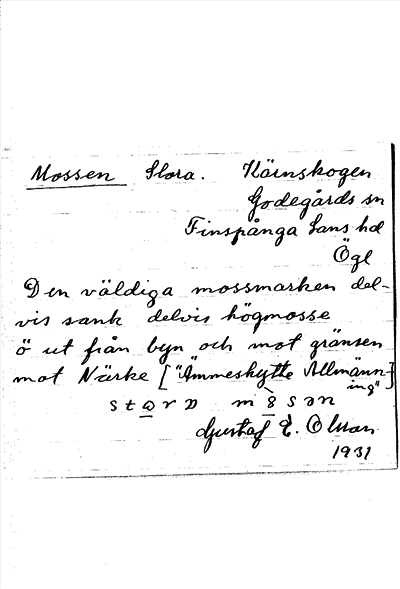 Mossen Stora. Kärnskogen
Godegårds sn
Finspånga läns hd
Ögl
Den väldiga mossmarken del-
vis sank delvis högmosse
ö ut från byn och mot gränsen
mot Närke ["Ämmeskytte Allmänn-
ing"]
Gustaf E. Olsson
1931